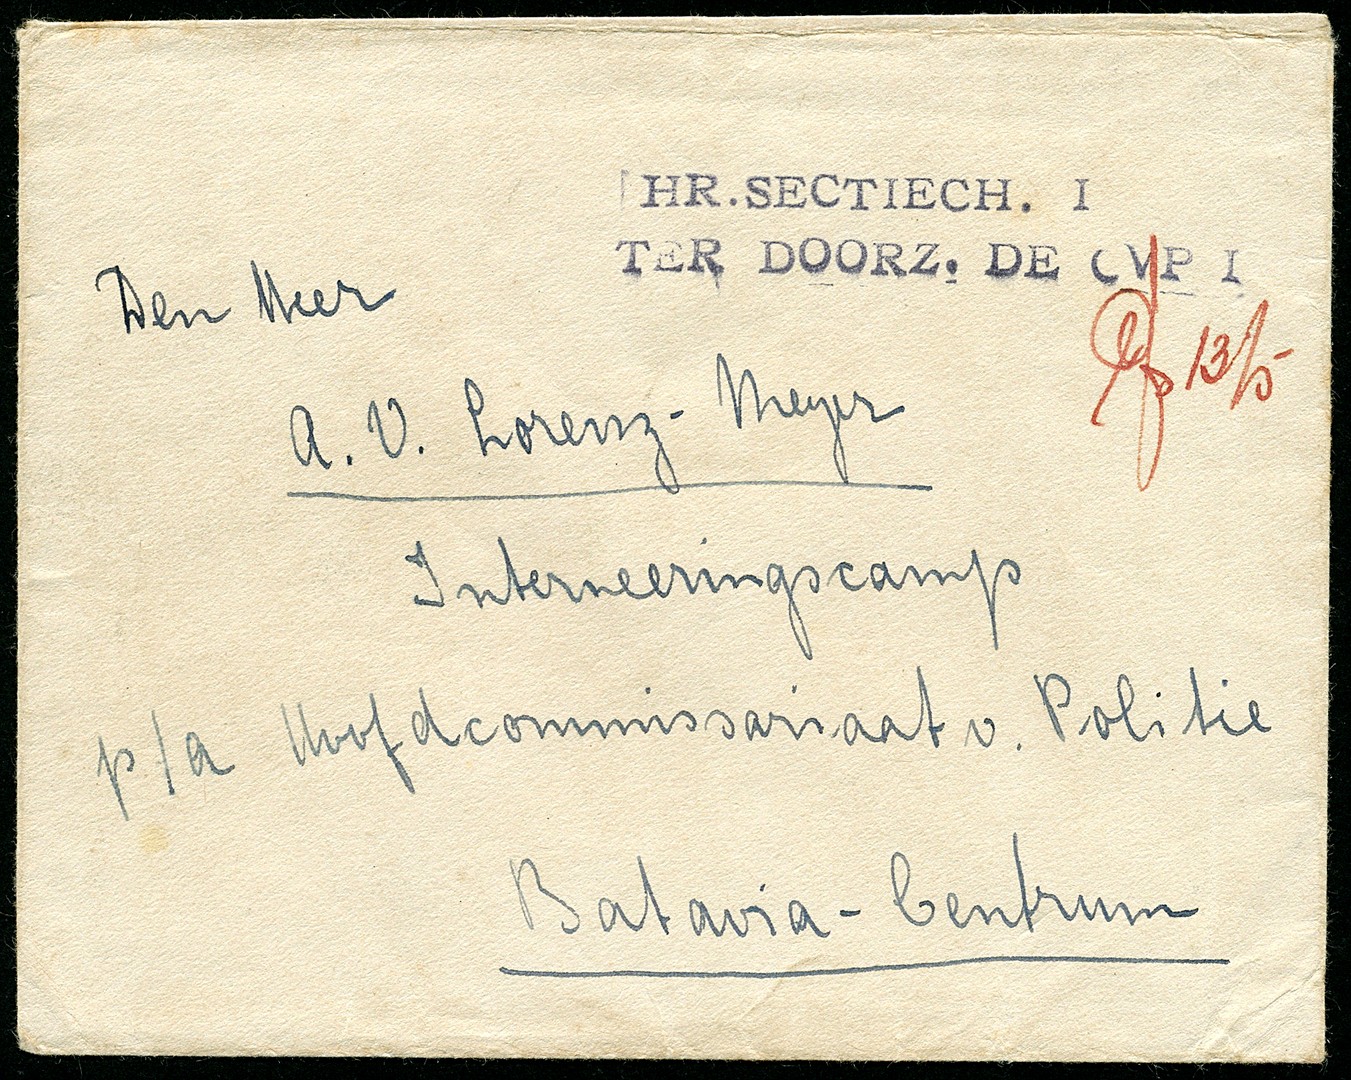 HR.SECTIECH. I
TER DOORZ. DE CVP I
13/5
Den Heer
A. V. Lorenz-Meyer
Interneeringscamp
p/a Hoofdcommissariaat v. Politie
Batavia-Centrum